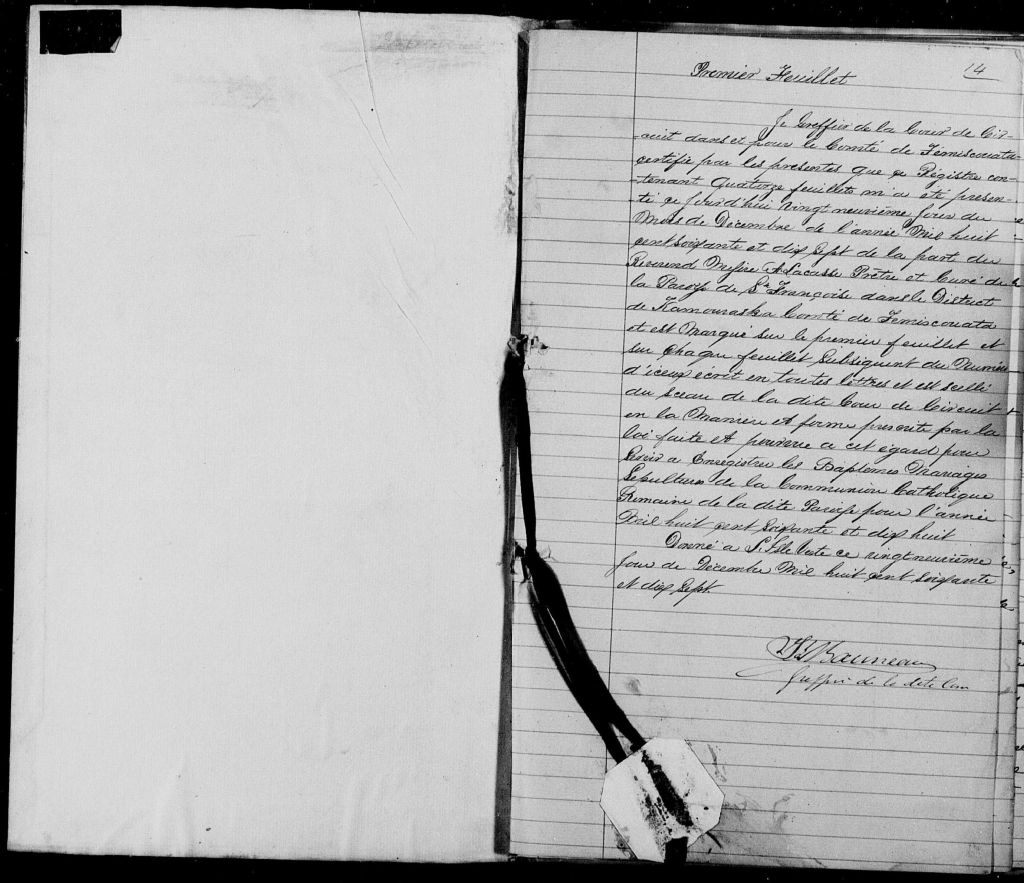 14
Premier Feuillet
Je Greffier de la Cour de Cir-
-cuit dans et pour le Comté de Témiscouata
certifie par les presentes que ce Régistre con-
-tenant Quatorze feuillets m'a été presen-
-té ce jourd'hui vingt neuvième jour du
Mois de Décembre de l'année Mil huit
cent soixante et dix Sept de la part du
Révérend Messire Lacasse Prêtre et Curé de
la Paroisse de St Françoise dans le District
de Kamouraska Comté de Témiscouata
et est Marqué sur le premier feuillet et
sur chaque feuillet Subséquent du Numéro
d'iceux écrit en toutes lettres et est scellé
du sceau de la dite Cour de Circuit
en la Maniere et forme prescrite par la
loi faite et pourvue a cet égard pour
Servir a Enrégistrer les Baptemes Mariages
Sépultures de la Communion Catholique
Romaine de la dite Paroisse pour l'année
Mil huit cent Soixante et dix huit
Donné a L'Isle Verte ce vingt neuvième
jour de Décembre Mil huit cent Soixante
et dix Sept.
Greffier de la dite Cour